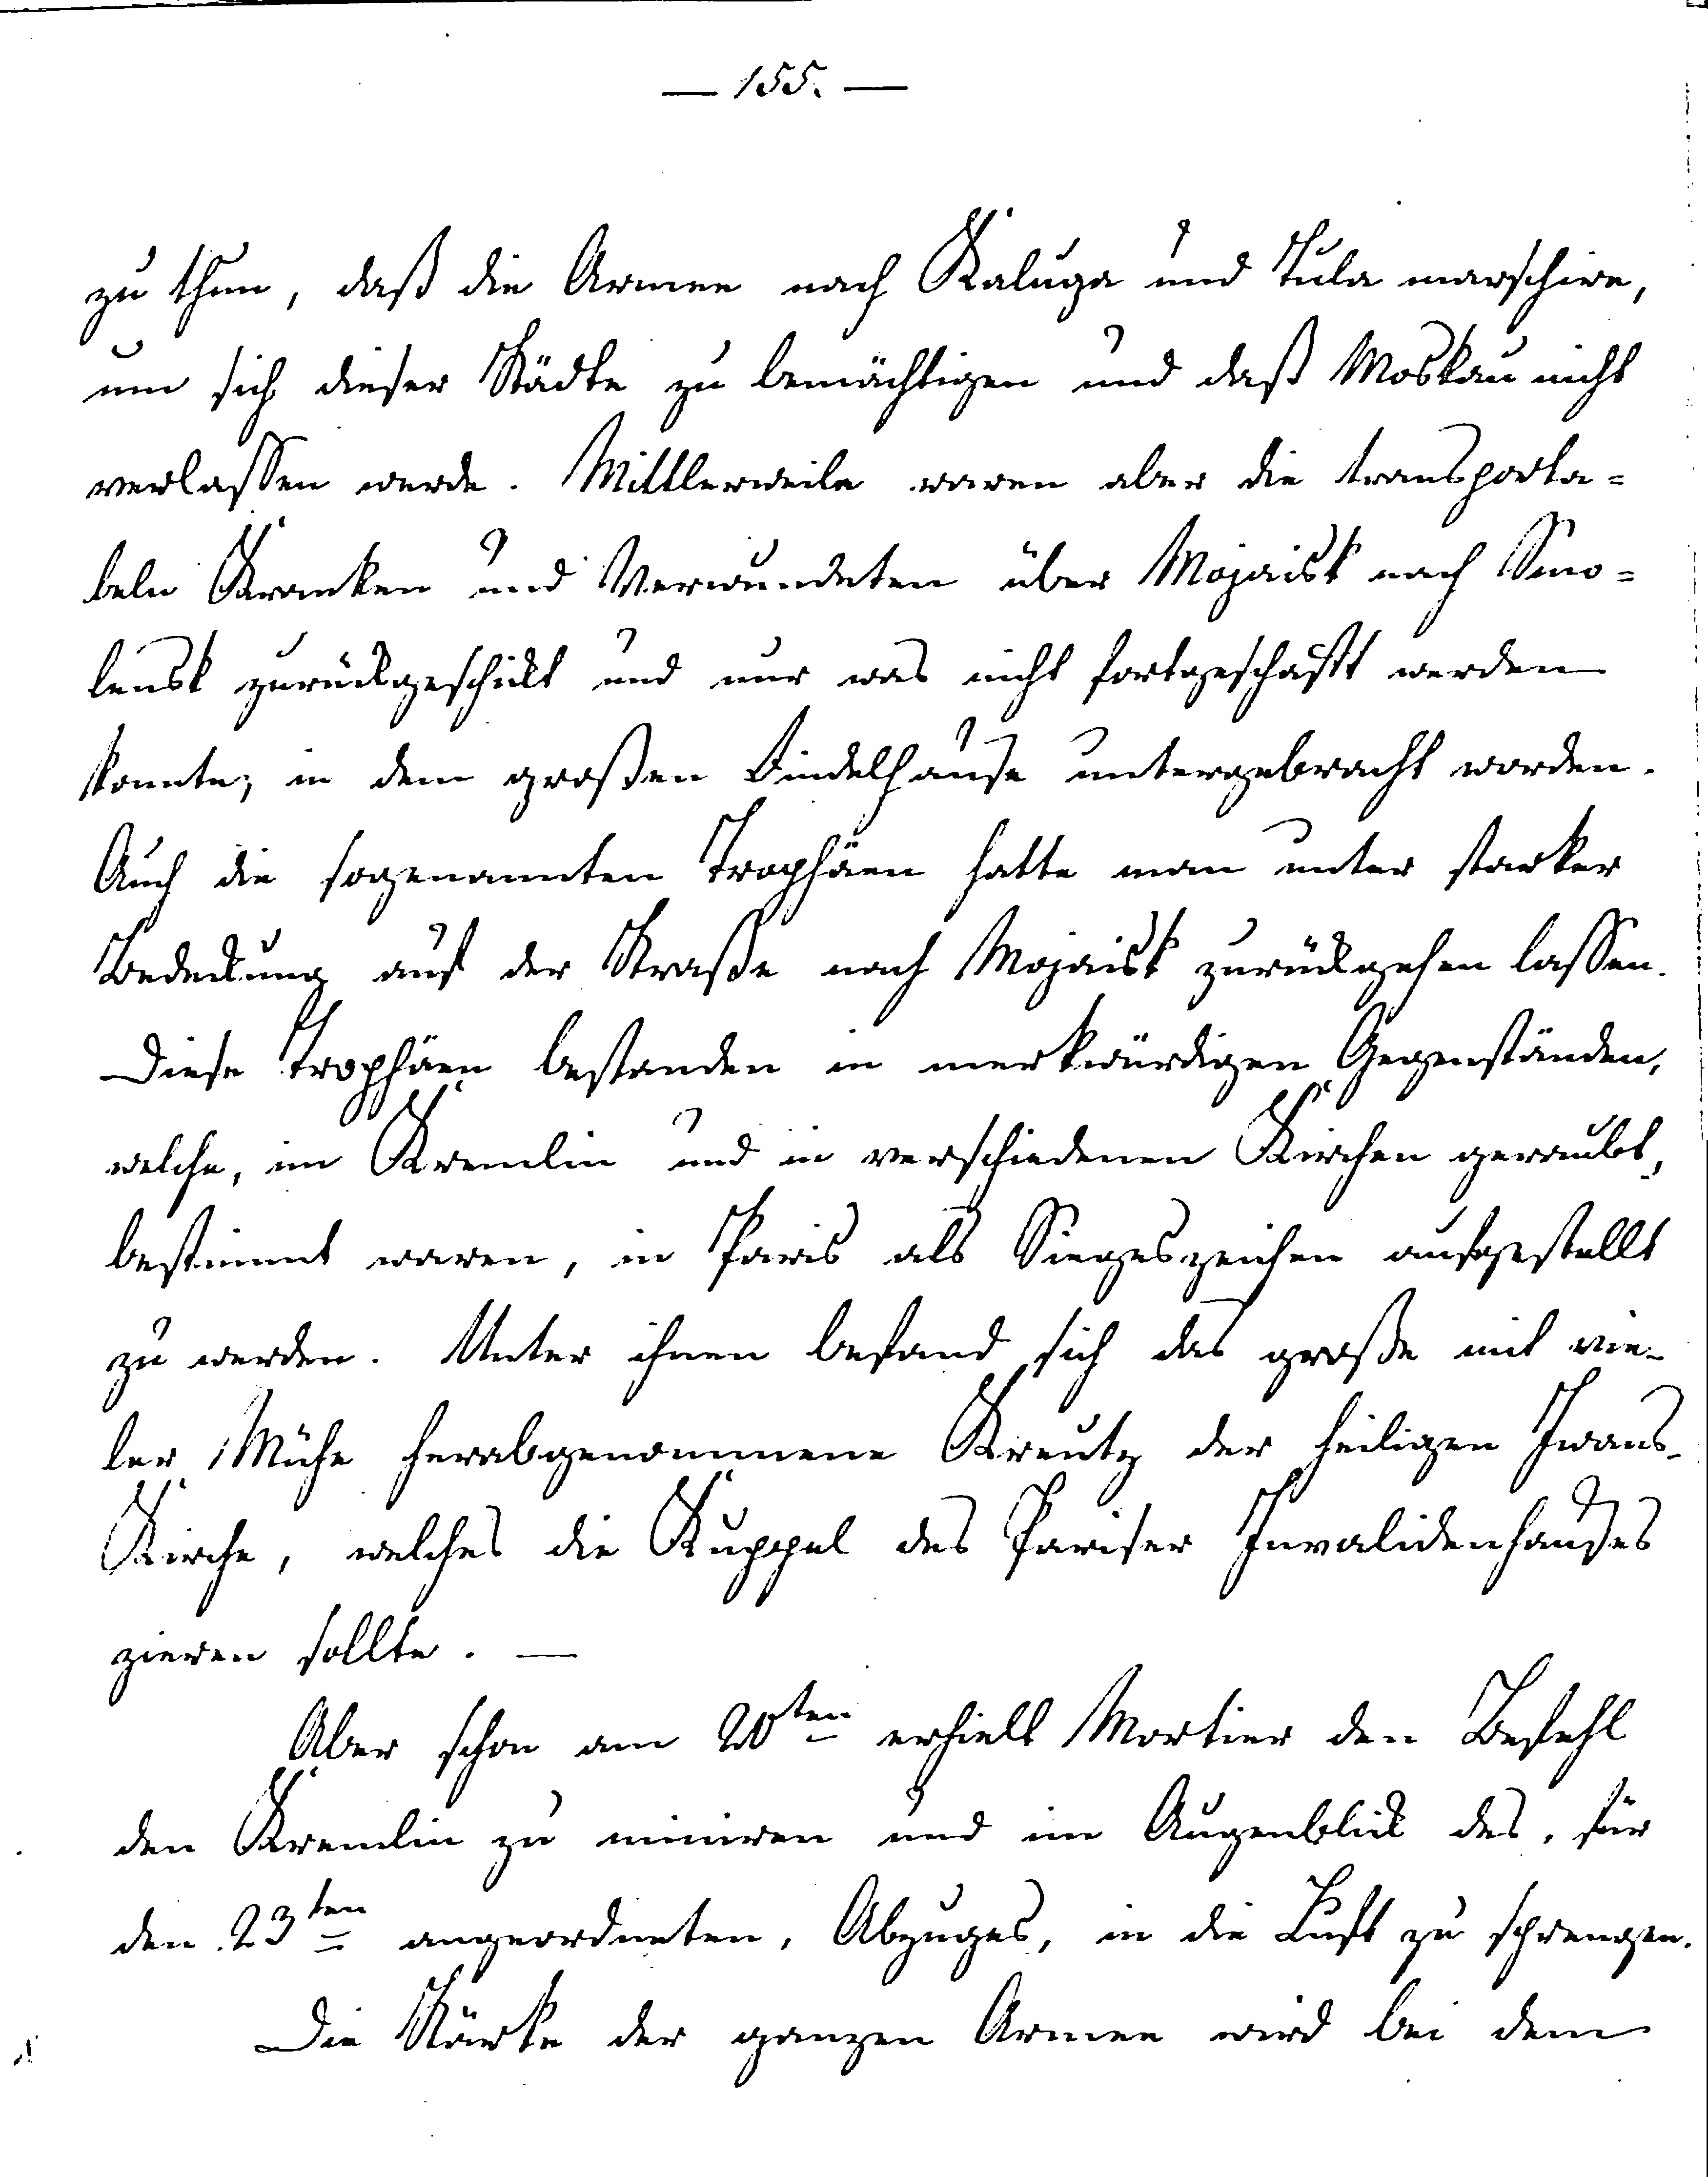 — 155. —
zu thun, daß die Armee nach Kaluga und Tula marschire,
um sich dieser Städte zu bemächtigen und daß Moskau nicht
verlassen werde. Mittlerweile waren aber die transporta=
beln Kranken und Verwundeten über Mojaisk nach Smo=
lensk zurückgeschickt und nur was nicht fortgeschafft werden
konnte, in dem großen Findelhause untergebracht worden.
Auch die sogenannten Trophäen hatte man unter starker
Bedeckung auf der Straße nach Mojaisk zurückgehen lassen.
Diese Trophäen bestanden in merkwürdigen Gegenständen,
welche, im Kremlin und in verschiedenen Kirchen geraubt,
bestimmt waren, in Paris als Siegeszeichen aufgestellt
zu werden. Unter ihnen befand sich das große mit vie-
ler Mühe herabgenommene Kreutz der heiligen Iwans-
Kirche, welches die Kuppel des Pariser Invalidenhauses
zieren sollte. —
Aber schon am 20ten erhielt Mortier den Befehl
den Kremlin zu miniren und im Augenblick des, für
den 23ten angeordneten, Abzuges, in die Luft zu sprengen.
Die Stärke der ganzen Armee wird bei dem